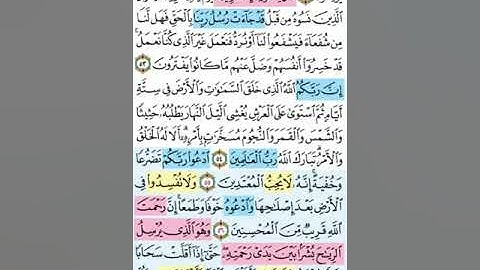 الَّذِينَ نَسُوهُ مِن قَبْلُ قَدْ جَآءَتْ رُسُلُ رَبِّنَا بِالْحَقِّ فَهَل لَّنَا
مِن شُفَعَآءَ فَيَشْفَعُوا۟ لَنَآ أَوْ نُرَدُّ فَنَعْمَلَ غَيْرَ الَّذِى كُنَّا نَعْمَلُ ۚ
قَدْ خَسِرُوٓا۟ أَنفُسَهُمْ وَضَلَّ عَنْهُم مَّا كَانُوا۟ يَفْتَرُونَ ٥٣
إِنَّ رَبَّكُمُ اللَّهُ الَّذِى خَلَقَ السَّمَٰوَٰتِ وَالْأَرْضَ فِى سِتَّةِ
أَيَّامٍ ثُمَّ اسْتَوَىٰ عَلَى الْعَرْشِ يُغْشِى الَّيْلَ النَّهَارَ يَطْلُبُهُۥ حَثِيثًا
وَالشَّمْسَ وَالْقَمَرَ وَالنُّجُومَ مُسَخَّرَٰتٍۭ بِأَمْرِهِۦٓ ۗ أَلَا لَهُ الْخَلْقُ
وَالْأَمْرُ ۗ تَبَارَكَ اللَّهُ رَبُّ الْعَٰلَمِينَ ٥٤ ادْعُوا۟ رَبَّكُمْ تَضَرُّعًا
وَخُفْيَةً ۚ إِنَّهُۥ لَا يُحِبُّ الْمُعْتَدِينَ ٥٥ وَلَا تُفْسِدُوا۟ فِى
الْأَرْضِ بَعْدَ إِصْلَٰحِهَا وَادْعُوهُ خَوْفًا وَطَمَعًا ۚ إِنَّ رَحْمَتَ
اللَّهِ قَرِيبٌ مِّنَ الْمُحْسِنِينَ ٥٦ وَهُوَ الَّذِى يُرْسِلُ
الرِّيَٰحَ بُشْرًۢا بَيْنَ يَدَىْ رَحْمَتِهِۦ ۖ حَتَّىٰٓ إِذَآ أَقَلَّتْ سَحَابًا